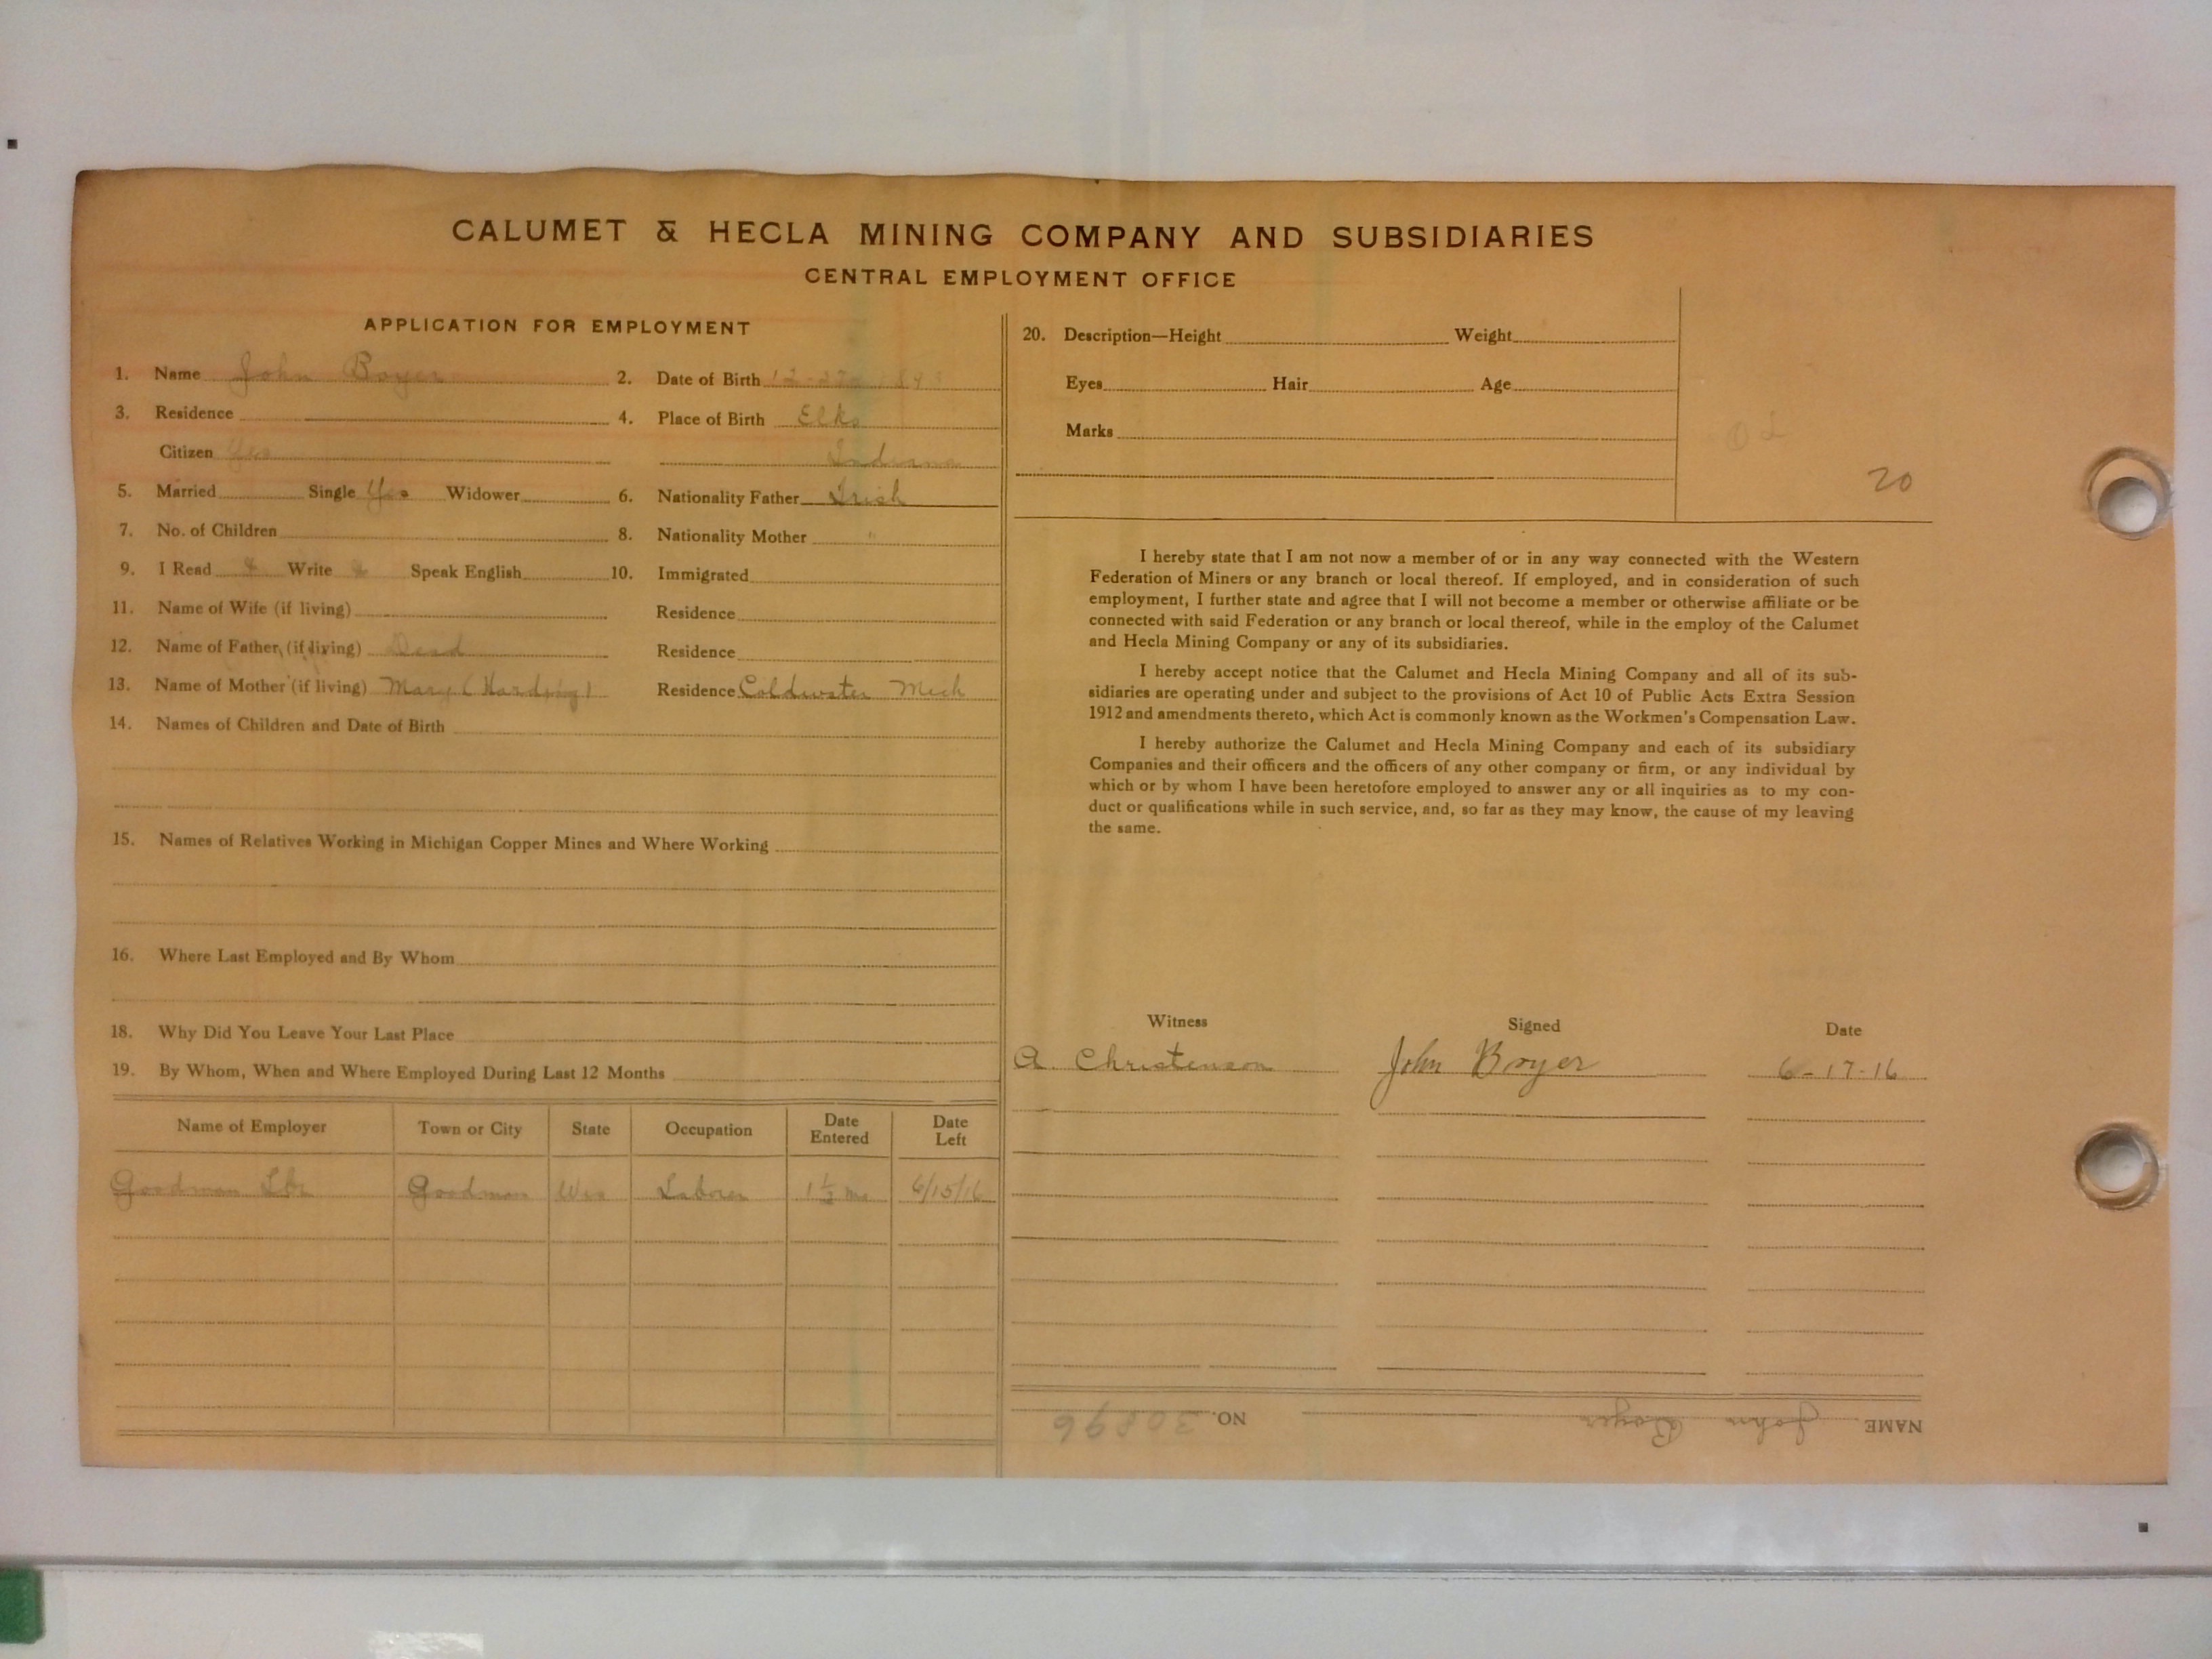 CALUMET & HECLA MINING COMPANY AND SUBSIDIARIES
CENTRAL EMPLOYMENT OFFICE
APPLICATION FOR EMPLOYMENT
1. Name John Boyer 2. Date of Birth
3. Residence 4. Place of Birth Elks
Citizen Yes Indiana
5. Married Single Yes Widower 6. Nationality Father Irish
7. No. of Children 8. Nationality Mother "
9. I Read Write Speak English 10. Immigrated
11. Name of Wife (if living) Residence
12. Name of Father (if living) Dead Residence
13. Name of Mother (if living) Mary (Harding) Residence Coldwater Mich
14. Names of Children and Date of Birth
15. Names of Relatives Working in Michigan Copper Mines and Where Working
16. Where Last Employed and By Whom
18. Why Did You Leave Your Last Place
19. By Whom, When and Where Employed During Last 12 Months
Name of Employer Town or City State Occupation Date Entered Date Left
Goodman Lbr Goodman Wis Laborer 1 1/2 mo 6/15/16
20. Description—Height Weight
Eyes Hair Age
Marks
20
I hereby state that I am not now a member of or in any way connected with the Western
Federation of Miners or any branch or local thereof. If employed, and in consideration of such
employment, I further state and agree that I will not become a member or otherwise affiliate or be
connected with said Federation or any branch or local thereof, while in the employ of the Calumet
and Hecla Mining Company or any of its subsidiaries.
I hereby accept notice that the Calumet and Hecla Mining Company and all of its sub-
sidiaries are operating under and subject to the provisions of Act 10 of Public Acts Extra Session
1912 and amendments thereto, which Act is commonly known as the Workmen's Compensation Law.
I hereby authorize the Calumet and Hecla Mining Company and each of its subsidiary
Companies and their officers and the officers of any other company or firm, or any individual by
which or by whom I have been heretofore employed to answer any or all inquiries as to my con-
duct or qualifications while in such service, and, so far as they may know, the cause of my leaving
the same.
Witness Signed Date
A. Christenson John Boyer 6-17-16
NAME John Boyer NO. 30896